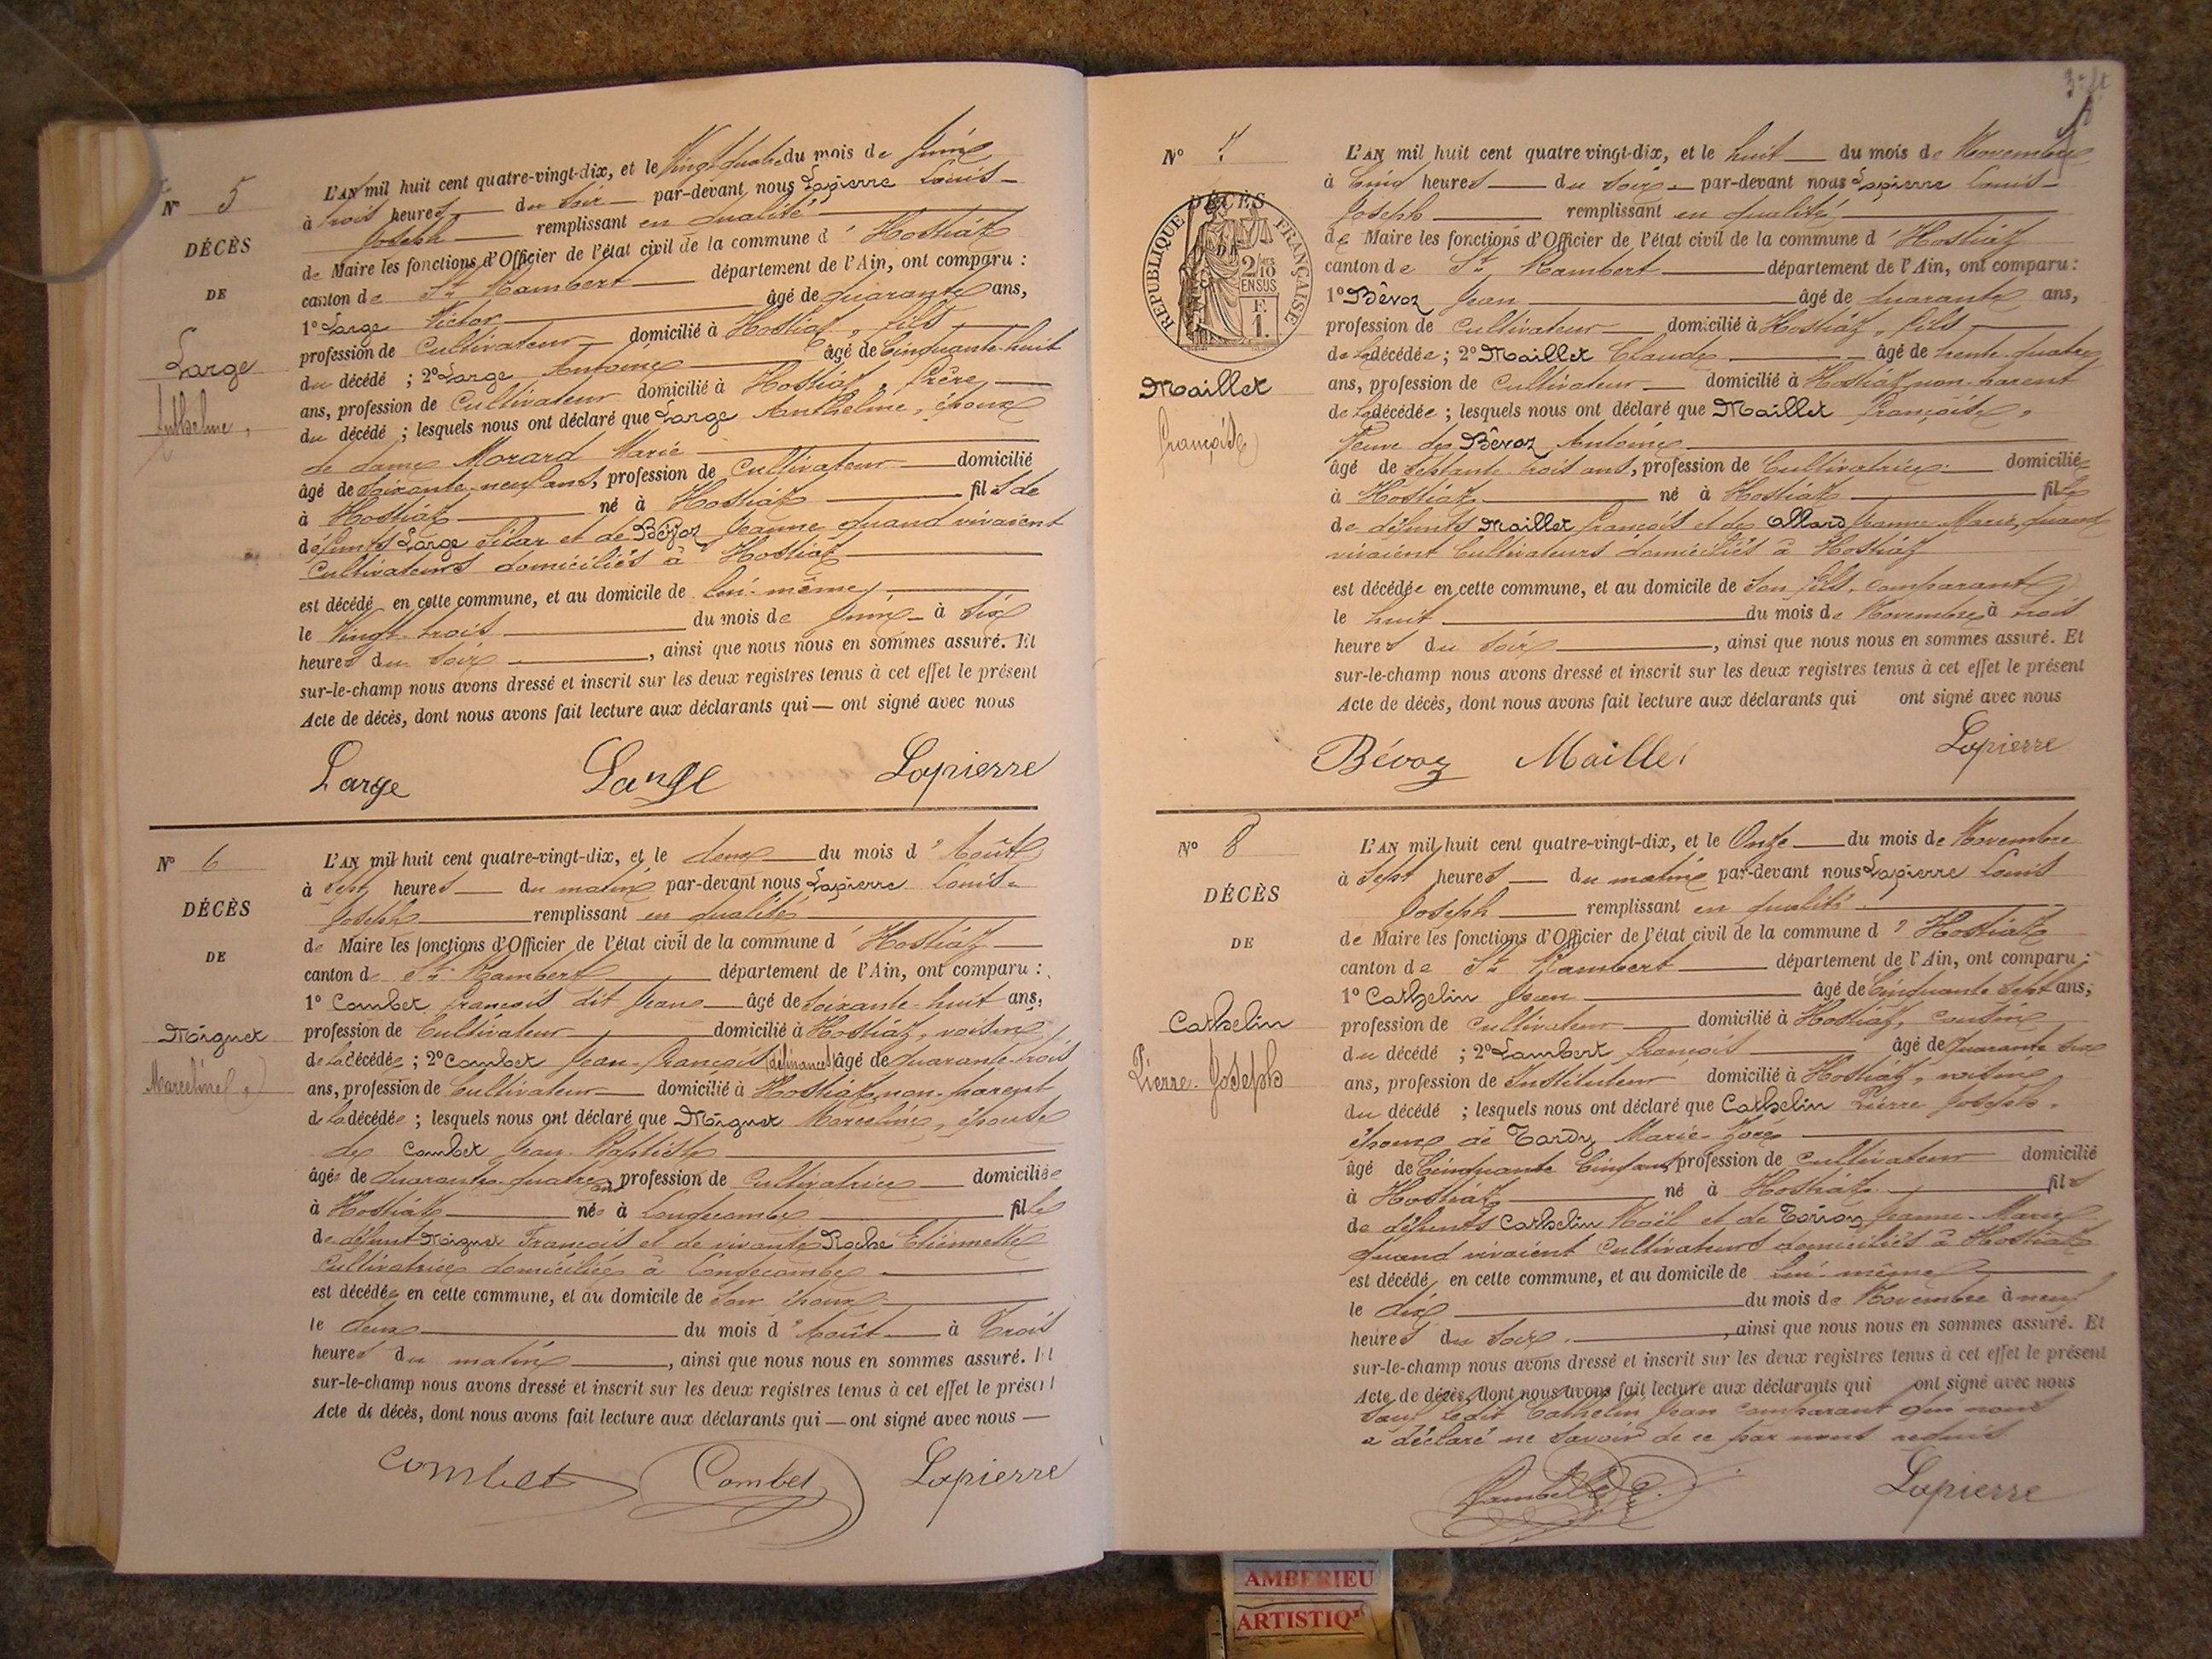 N° 5
DÉCÈS
DE
Large
Anthelme,
L'AN mil huit cent quatre-vingt-dix, et le Vingt quatre du mois de Juin
à trois heures du soir par-devant nous Lapierre Louis-
Joseph remplissant en qualité
de Maire les fonctions d'Officier de l'état civil de la commune d' Hostiaz
canton de St Rambert département de l'Ain, ont comparu :
1° Large Victor âgé de quarante ans,
profession de Cultivateur domicilié à Hostiaz, fils
du décédé ; 2° Large Antoine âgé de Cinquante-huit
ans, profession de Cultivateur domicilié à Hostiaz, frère,
du décédé ; lesquels nous ont déclaré que Large Anthelme, époux
de dame Morard Marie
âgé de soixante-neuf ans, profession de Cultivateur domicilié
à Hostiaz né à Hostiaz fils de
défunts Large Silar et de Bévoz Jeanne quand vivaient
Cultivateurs domiciliés à Hostiaz
est décédé en cette commune, et au domicile de lui-même
le Vingt-trois du mois de Juin à six
heures du soir, ainsi que nous nous en sommes assuré. Et
sur-le-champ nous avons dressé et inscrit sur les deux registres tenus à cet effet le présent
Acte de décès, dont nous avons fait lecture aux déclarants qui — ont signé avec nous
Large Large Lapierre
N° 6
DÉCÈS
DE
Moignet
Marceline
L'AN mil huit cent quatre-vingt-dix, et le deux du mois d'Août
à sept heures du matin par-devant nous Lapierre Louis-
Joseph remplissant en qualité
de Maire les fonctions d'Officier de l'état civil de la commune d' Hostiaz
canton de St Rambert département de l'Ain, ont comparu :
1° Combet François dit Jean âgé de soixante-huit ans,
profession de Cultivateur domicilié à Hostiaz, voisin
de la décédée ; 2° Combet Jean-François âgé de quarante-trois
ans, profession de Cultivateur domicilié à Hostiaz, non-parent
de la décédée ; lesquels nous ont déclaré que Moignet Marceline, épouse
de Combet Jean Baptiste
âgée de quarante-quatre ans profession de Cultivatrice domiciliée
à Hostiaz née à Longecombe fille
de défunt Moignet François et de vivante Roche Etiennette
Cultivatrice domiciliée à Longecombe
est décédée en cette commune, et au domicile de son époux
le deux du mois d'Août à Trois
heures du matin, ainsi que nous nous en sommes assuré. Et
sur-le-champ nous avons dressé et inscrit sur les deux registres tenus à cet effet le présent
Acte de décès, dont nous avons fait lecture aux déclarants qui — ont signé avec nous —
Combet Combet Lapierre
N° 7
DÉCÈS
RÉPUBLIQUE FRANÇAISE
2/10 EN SUS
F.
1.
Maillet
Françoise
L'AN mil huit cent quatre vingt-dix, et le huit du mois de Novembre
à Cinq heures du soir par-devant nous Lapierre Louis-
Joseph remplissant en qualité
de Maire les fonctions d'Officier de l'état civil de la commune d' Hostiaz
canton de St Rambert département de l'Ain, ont comparu :
1° Bêvoz Jean âgé de quarante ans,
profession de Cultivateur domicilié à Hostiaz, fils
de la décédée ; 2° Maillet Claude âgé de trente-quatre
ans, profession de Cultivateur domicilié à Hostiaz non-parent
de la décédée ; lesquels nous ont déclaré que Maillet Françoise,
Veuve de Bêvoz Antoine
âgé de septante trois ans, profession de Cultivatrice domiciliée
à Hostiaz né à Hostiaz fille
de défunts Maillet François et de Allard Jeanne-Marie, quand
vivaient Cultivateurs domiciliés à Hostiaz
est décédée en cette commune, et au domicile de son fils, comparant
le huit du mois de Novembre à trois
heures du soir, ainsi que nous nous en sommes assuré. Et
sur-le-champ nous avons dressé et inscrit sur les deux registres tenus à cet effet le présent
Acte de décès, dont nous avons fait lecture aux déclarants qui ont signé avec nous
Bévoz Maillet Lapierre
N° 8
DÉCÈS
DE
Cathelin
Pierre-Joseph
L'AN mil huit cent quatre-vingt-dix, et le Onze du mois de Novembre
à sept heures du matin par-devant nous Lapierre Louis
Joseph remplissant en qualité
de Maire les fonctions d'Officier de l'état civil de la commune d' Hostiaz
canton de St Rambert département de l'Ain, ont comparu :
1° Cathelin Jean âgé de Cinquante sept ans,
profession de Cultivateur domicilié à Hostiaz, cousin
du décédé ; 2° Lambert François âgé de quarante six
ans, profession de Instituteur domicilié à Hostiaz, voisin
du décédé ; lesquels nous ont déclaré que Cathelin Pierre Joseph,
époux de Tardy Marie-Zoée
âgé de Cinquante Cinq ans profession de Cultivateur domicilié
à Hostiaz né à Hostiaz fils
de défunts Cathelin Noël et de Jeanne-Marie
quand vivaient Cultivateurs domiciliés à Hostiaz
est décédé en cette commune, et au domicile de lui-même
le dix du mois de Novembre à neuf
heures du soir, ainsi que nous nous en sommes assuré. Et
sur-le-champ nous avons dressé et inscrit sur les deux registres tenus à cet effet le présent
Acte de décès, dont nous avons fait lecture aux déclarants qui ont signé avec nous
sauf ledit Cathelin Jean comparant qui nous
a déclaré ne savoir de ce par nous requis
Lambert Lapierre
AMBERIEU
ARTISTIQ